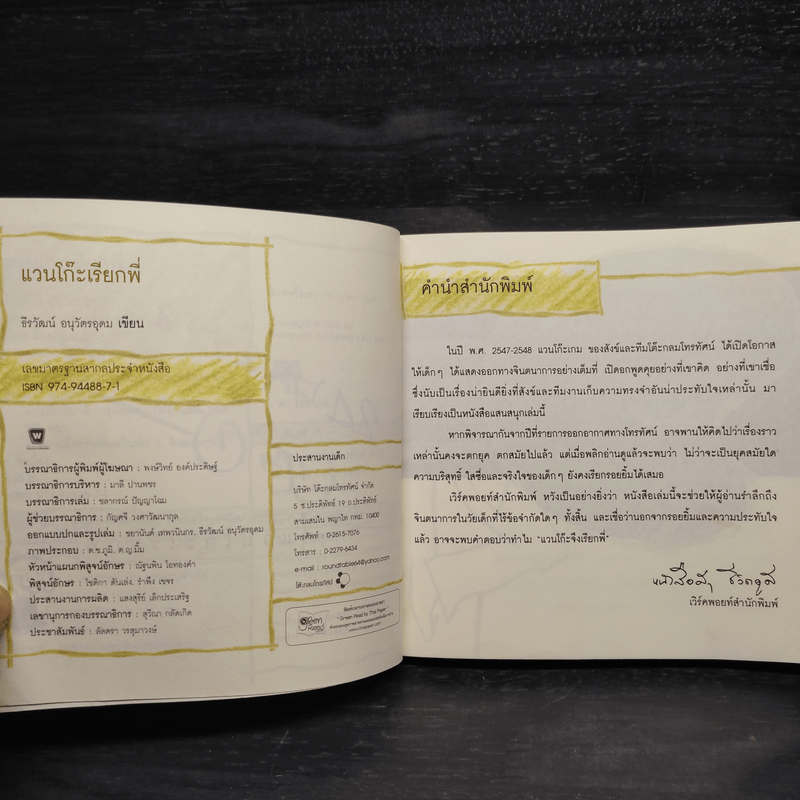 แวนโก๊ะเรียกพี่
ธีรวัฒน์ อนุวัตรอุดม เขียน
เลขมาตรฐานสากลประจำหนังสือ
ISBN 974-94488-7-1
W
บรรณาธิการผู้พิมพ์ผู้โฆษณา : พงษ์วิทย์ ยงค์ประดิษฐ์
บรรณาธิการบริหาร : มาลี ปานพชร
บรรณาธิการเล่ม : ชลากรณ์ ปัญญาโฉม
ผู้ช่วยบรรณาธิการ : กัญศจี วงศาวัฒนากุล
ออกแบบปกและรูปเล่ม : ชยานันต์ เทพวนินกร, ธีรวัฒน์ อนุวัตรอุดม
ภาพประกอบ : ด.ช.ภูมิ, ด.ญ.มิ้ม
หัวหน้าแผนกพิสูจน์อักษร : ณัฐนพิน โอทองคำ
พิสูจน์อักษร : โชติกา ตันเล่ง, รำพึง เชจร
ประสานงานการผลิต : แสงสุรีย์ เล็กประเสริฐ
เลขานุการกองบรรณาธิการ : สุวิณา กลัดเกิด
ประชาสัมพันธ์ : ลัลตรา วรสุมาวงษ์
ประสานงานเด็ก
บริษัท โต๊ะกลมโทรทัศน์ จำกัด
5 ซ.ประดิพัทธ์ 19 ถ.ประดิพัทธ์
สามเสนใน พญาไท กทม. 10400
โทรศัพท์ : 0-2615-7076
โทรสาร : 0-2279-6434
e-mail : roundtable64@yahoo.com
โต๊ะกลมโทรทัศน์
Green Read
" Green Read by Thai Paper"
คำนำสำนักพิมพ์
ในปี พ.ศ. 2547-2548 แวนโก๊ะเกม ของสังข์และทีมโต๊ะกลมโทรทัศน์ ได้เปิดโอกาส
ให้เด็กๆ ได้แสดงออกทางจินตนาการอย่างเต็มที่ เปิดอกพูดคุยอย่างที่เขาคิด อย่างที่เขาเชื่อ
ซึ่งนับเป็นเรื่องน่ายินดียิ่งที่สังข์และทีมงานเก็บความทรงจำอันน่าประทับใจเหล่านั้น มา
เรียบเรียงเป็นหนังสือแสนสนุกเล่มนี้
หากพิจารณากันจากปีที่รายการออกอากาศทางโทรทัศน์ อาจพานให้คิดไปว่าเรื่องราว
เหล่านั้นคงจะตกยุค ตกสมัยไปแล้ว แต่เมื่อพลิกอ่านดูแล้วจะพบว่า ไม่ว่าจะเป็นยุคสมัยใด
ความบริสุทธิ์ ใสซื่อและจริงใจของเด็กๆ ยังคงเรียกรอยยิ้มได้เสมอ
เวิร์คพอยท์สำนักพิมพ์ หวังเป็นอย่างยิ่งว่า หนังสือเล่มนี้จะช่วยให้ผู้อ่านรำลึกถึง
จินตนาการในวัยเด็กที่ไร้ข้อจำกัดใดๆ ทั้งสิ้น และเชื่อว่านอกจากรอยยิ้มและความประทับใจ
แล้ว อาจจะพบคำตอบว่าทำไม "แวนโก๊ะจึงเรียกพี่"
เวิร์คพอยท์สำนักพิมพ์